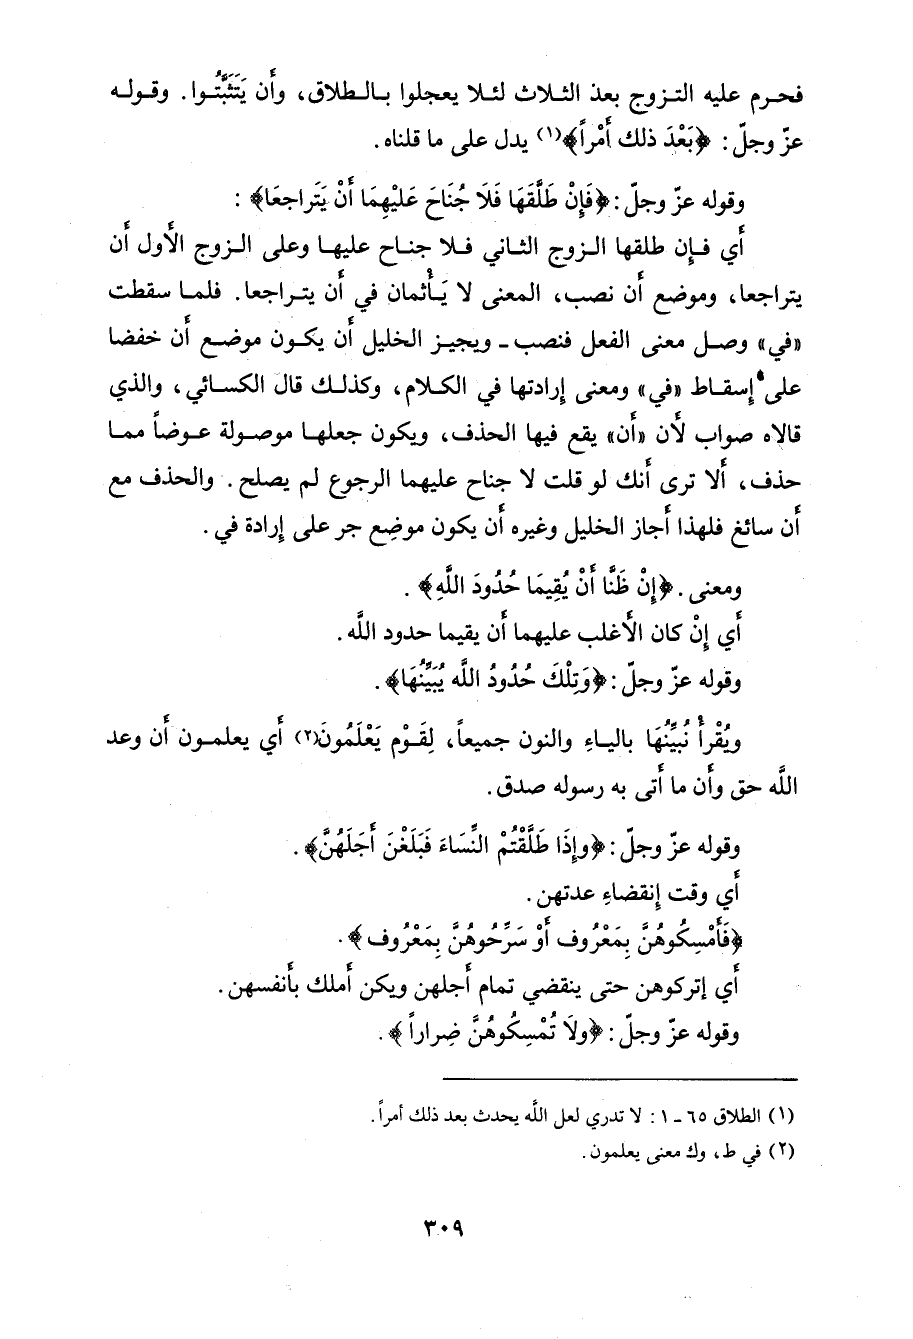 فحرم عليه التزوج بعد الثلاث لئلا يعجلوا بالطلاق، وأَن يَتَثَبَّتُوا. وقوله
عزّ وجلّ: ﴿بَعْدَ ذلك أَمْراً﴾(١) يدل على ما قلناه.
وقوله عزّ وجلّ: ﴿فَإِنْ طَلَّقَهَا فَلَا جُنَاحَ عَلَيْهِمَا أَنْ يَتَراجعَا﴾:
أَي فإن طلقها الزوج الثاني فلا جناح عليها وعلى الزوج الأول أَن
يتراجعا، وموضع أَن نصب، المعنى لا يَأْثمان في أَن يتراجعا. فلما سقطت
«في» وصل معنى الفعل فنصب ـ ويجيز الخليل أَن يكون موضع أَن خفضا
على إسقاط «في» ومعنى إرادتها في الكلام، وكذلك قال الكسائي، والذي
قالاه صواب لأن «أَن» يقع فيها الحذف، ويكون جعلها موصولة عوضاً مما
حذف، أَلا ترى أَنك لو قلت لا جناح عليهما الرجوع لم يصلح. والحذف مع
أَن سائغ فلهذا أَجاز الخليل وغيره أَن يكون موضِع جر على إرادة في.
ومعنى. ﴿إِنْ ظَنَّا أَنْ يُقِيمَا حُدُودَ اللَّهِ﴾.
أَي إِنْ كان الأَغلب عليهما أَن يقيما حدود اللَّه.
وقوله عزّ وجلّ: ﴿وَتِلْكَ حُدُودُ اللَّه يُبَيِّنُهَا﴾.
ويُقْرأُ نُبَيِّنُهَا بالياءِ والنون جميعاً، لِقَوْم يَعْلَمُونَ(٢) أَي يعلمون أَن وعد
اللَّه حق وأَن ما أَتى به رسوله صدق.
وقوله عزّ وجلّ: ﴿وإِذَا طَلَّقْتُمْ النِّسَاءَ فَبَلَغْنَ أَجَلَهُنَّ﴾.
أَي وقت إنقضاءِ عدتهن.
﴿فَأَمْسِكُوهُنَّ بِمَعْرُوف أَوْ سَرِّحُوهُنَّ بِمَعْرُوف﴾.
أَي إتركوهن حتى ينقضي تمام أَجلهن ويكن أَملك بأَنفسهن.
وقوله عزّ وجلّ: ﴿ولَا تُمْسِكُوهُنَّ ضِراراً﴾.
(١) الطلاق ٦٥ ـ ١: لا تدري لعل اللَّه يحدث بعد ذلك أمراً.
(٢) في ط، وك معنى يعلمون.
٣٠٩